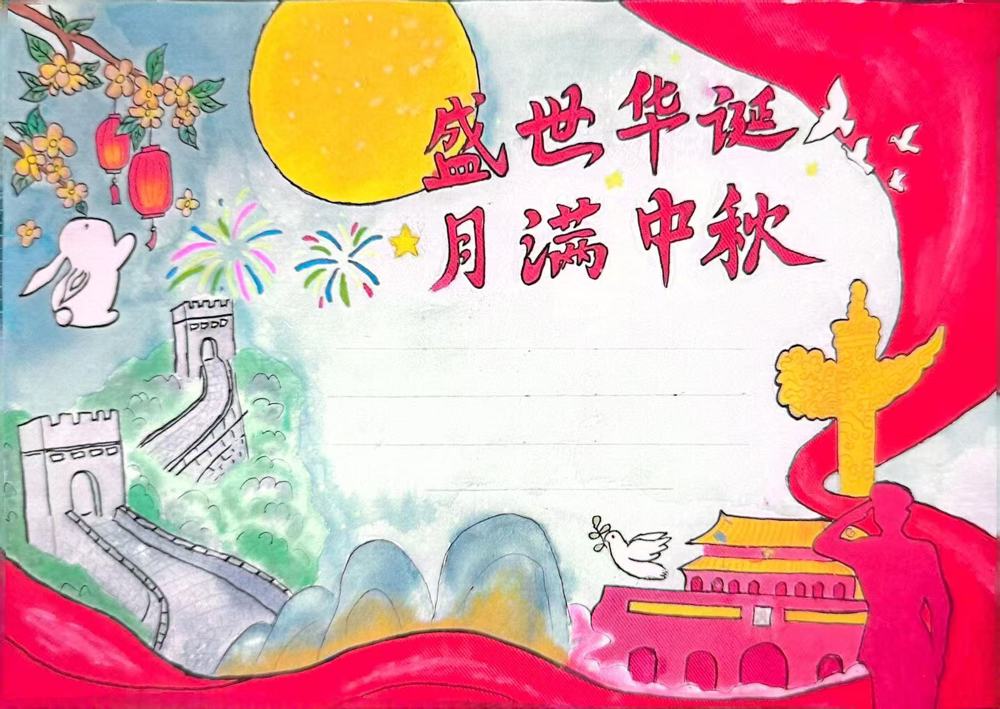 盛世华诞
月满中秋